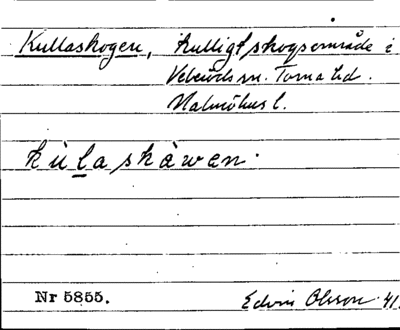 Kullaskogen, kulligt skogsområde i
Veberöds sn. Torna hd.
Malmöhus l.
kùlaskàwan.
Nr 5855.
Edvin Olsson 41.